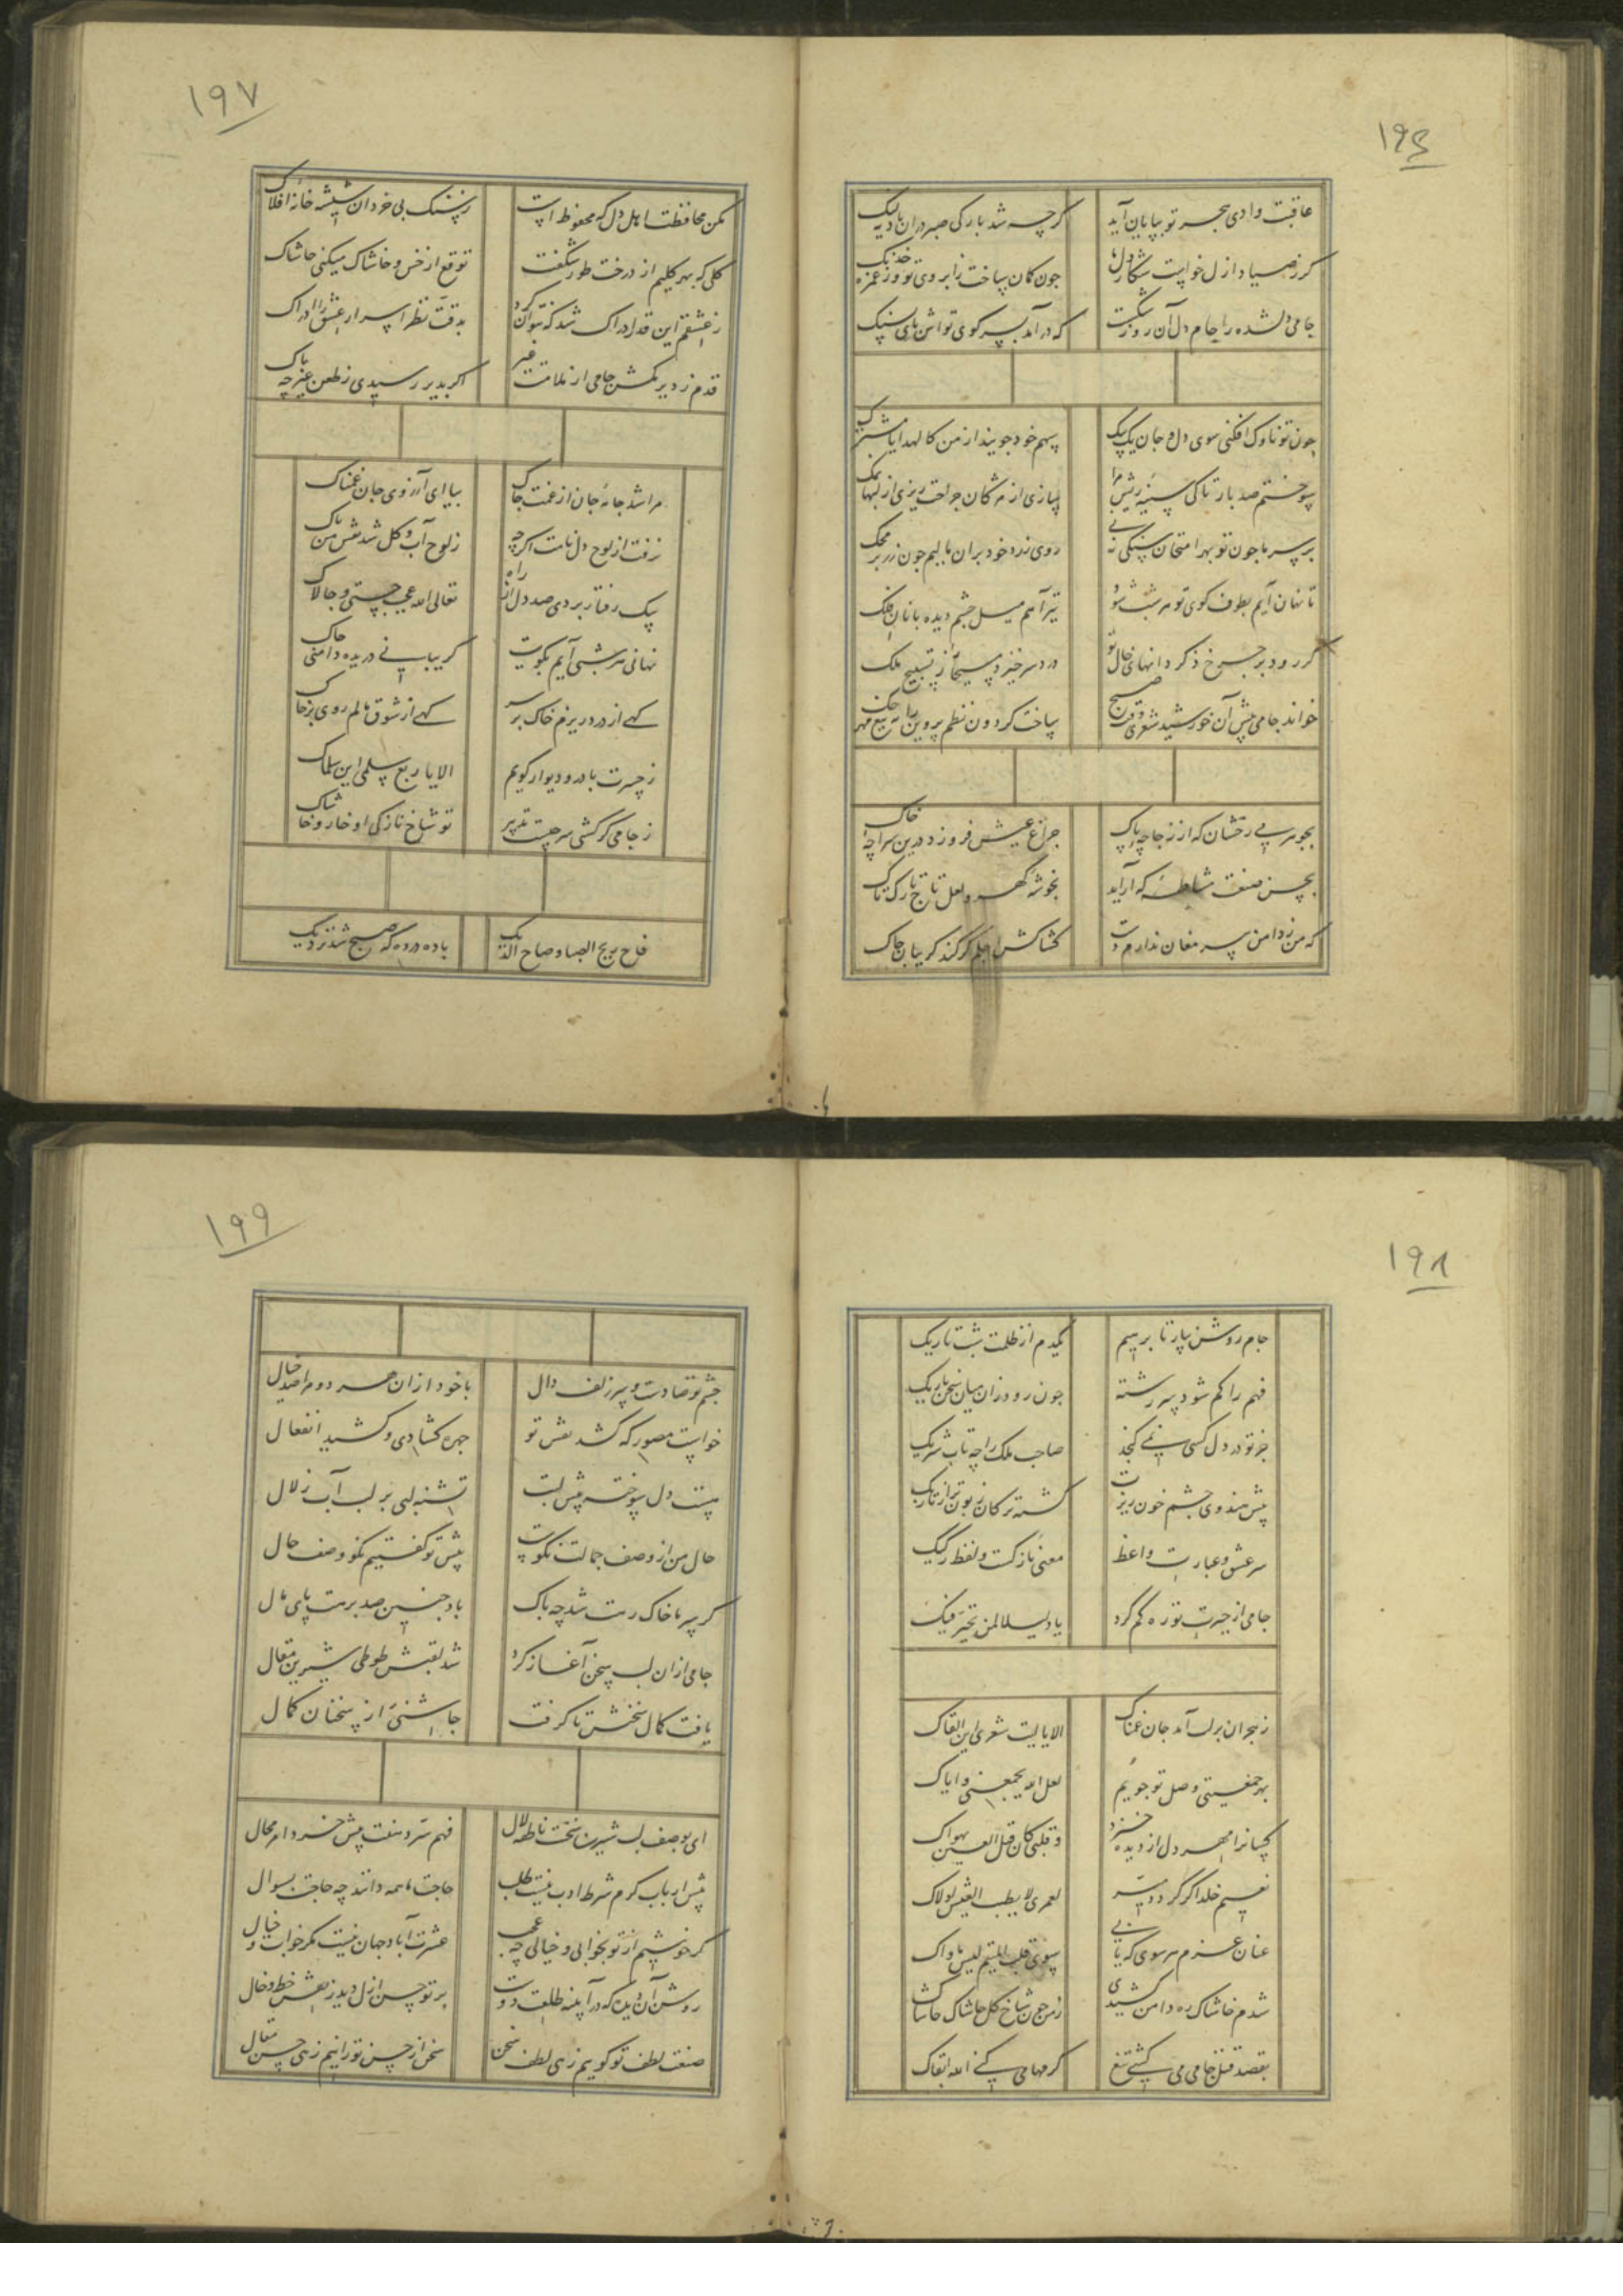 ۱۹۶
عاقبت وادی هجر تو بپایان آید
کرچه شد بارکی صبر در ان بادیه لنک
کر نه صیاد ازل خواست شکار دلها
چون کمان ساخت ز ابروی تو وز غمزه خدنک
جامی دلشده را جام دل آن روز شکست
که در آمد بسر کوی تواش پای بسنک
چون تو ناوک افکنی سوی دل و جان یک بیک
سهم خود جویند از من کالهدایا مشترک
سوختم صد بار تا کی سینه ریش مرا
سازی از مژکان جراحت ریزی از لبها نمک
بر سر ما چون تو بهر امتحان سنکی زنی
روی زرد خود بران مالیم چون زر بر محک
تا نهان آیم بطوف کوی تو هر شب شود
تیر آهم میل چشم دیده بانان فلک
کر رود بر چرخ ذکر دانهای خال تو
در سر خیزد مسیحا را ز تسبیح ملک
خواند جامی پیش آن خورشید شعری وقت صبح
ساخت کردون نظم پروین را بتیغ مهر حک
بجوهر می رخشان که از زجاجه پاک
چراغ عیش فروزد درین سراچه خاک
بحسن صنعت مشاطه که آراید
بخوشه کهر و لعل تاج تارک تاک
که من ز دامن پیر مغان ندارم دست
کشاکش اجلم کر کند کریبان چاک
۱۹۷
مکن محافظت اهل دل که محفوظ است
ز سنک بی خردان شیشه خانه افلاک
کلی که بهر کلیم از درخت طور شکفت
توقع از خس و خاشاک میکنی حاشاک
ز عشقم این قدر ادراک شد که نتوان کرد
بدقت نظر اسرار عشق را ادراک
قدم ز دیر مکش جامی از ملامت غیر
اکر بدیر رسیدی ز طعن غیر چه باک
مرا شد جامه جان از غمت چاک
بیا ای آرزوی جان غمناک
نرفت از لوح دل نامت اکرچه
ز لوح آب و کل شد نقش من پاک
بیک رفتار بردی صد دل از راه
تعالی الله عجب چستی و چالاک
نهانی هر شبی آیم بکویت
کریبانی دریده دامنی چاک
کهی از درد ریزم خاک بر سر
کهی از شوق مالم روی بر خاک
ز حسرت با در و دیوار کویم
الا یا ربع سلمی این سلماک
ز جامی کر کشی سر چیست تدبیر
تو شاخ نازکی او خار و خاشاک
فاح ریح الصبا و صاح الدیک
باده در ده که صبح شد نزدیک
۱۹۸
جام روشن بیار تا برهیم
یکدم از ظلمت شب تاریک
فهم را کم شود سر رشته
چون رود زان میان سخن باریک
جز تو در دل کسی نمی کنجد
صاحب ملک را چه تاب شریک
پیش هندوی چشم خون ریزت
کشته ترکان زبون تر از تاجیک
سر عشق و عبارت واعظ
معنی نازکست و لفظ رکیک
جامی از حیرت تو ره کم کرد
یا دلیلا لمن تحیر فیک
ز هجران بر لب آمد جان غمناک
الا یا لیت شعری این القاک
بهر جمعیتی وصل تو جویم
لعل الله یجمعنی و ایاک
کسانرا مهر دل از دیده خیزد
و قلبی کان قبل العین یهواک
نعیم خلد اکر کردد میسر
لعمری لا یطیب العیش لولاک
عنان عزم هر سوی که تابی
سوی قلب المتیم لیس ماواک
شدم خاشاک ره دامن کشیدی
ز من چون شاخ کل حاشاک حاشاک
بقصد قتل جامی می کشی تیغ
کرمها می کنی الله ابقاک
۱۹۹
چشم تو صادست و سر زلف دال
با خود ازان هر دو مرا صد خیال
خواست مصور که کشد نقش تو
چهره کشادی و کشید انفعال
هست دل سوخته پیش لبت
تشنه لبی بر لب آب زلال
حال من از وصف جمالت نکوست
پیش تو کفتیم نکو وصف حال
کر سر ما خاک رهت شد چه باک
باد چنین صد برهت پای مال
جامی ازان لب سخن آغاز کرد
شد لقبش طوطی شیرین مقال
یافت کمال سخنش تا کرفت
چاشنی از سخنان کمال
ای بوصف لب شیرین سخنت ناطقه لال
فهم سر دهنت پیش خرد امر محال
پیش ارباب کرم شرط ادب نیست طلب
حاجت ما همه دانند چه حاجت بسوال
کر خوشیم از تو بخوابی و خیالی چه عجب
عشرت آباد جهان نیست مکر خواب و خیال
روشن آن دیده که در آینه طلعت دوست
پرتو حسن ازل دید ز نقش خط و خال
صفت لطف تو کویم زهی لطف سخن
سخن از حسن تو رانیم زهی حسن مقال